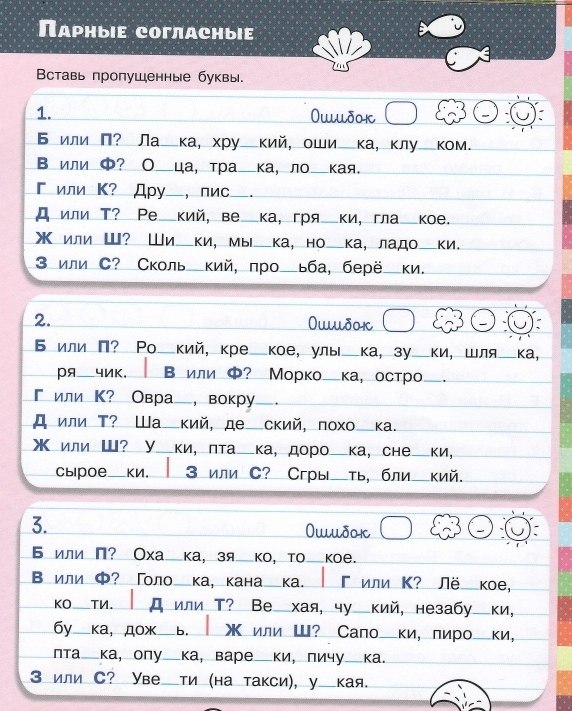 Парные согласные
Вставь пропущенные буквы.
1. Ошибок
Б или П? Ла__ка, хру__кий, оши__ка, клу__ком.
В или Ф? О__ца, тра__ка, ло__кая.
Г или К? Дру__, пис__.
Д или Т? Ре__кий, ве__ка, гря__ки, гла__кое.
Ж или Ш? Ши__ки, мы__ка, но__ка, ладо__ки.
З или С? Сколь__кий, про__ьба, берё__ки.
2. Ошибок
Б или П? Ро__кий, кре__кое, улы__ка, зу__ки, шля__ка,
ря__чик. | В или Ф? Морко__ка, остро__.
Г или К? Овра__, вокру__.
Д или Т? Ша__кий, де__ский, похо__ка.
Ж или Ш? У__ки, пта__ка, доро__ка, сне__ки,
сырое__ки. | З или С? Сгры__ть, бли__кий.
3. Ошибок
Б или П? Оха__ка, зя__ко, то__кое.
В или Ф? Голо__ка, кана__ка. | Г или К? Лё__кое,
ко__ти. | Д или Т? Ве__хая, чу__кий, незабу__ки,
бу__ка, дож__ь. | Ж или Ш? Сапо__ки, пиро__ки,
пта__ка, опу__ка, варе__ки, пичу__ка.
З или С? Уве__ти (на такси), у__кая.